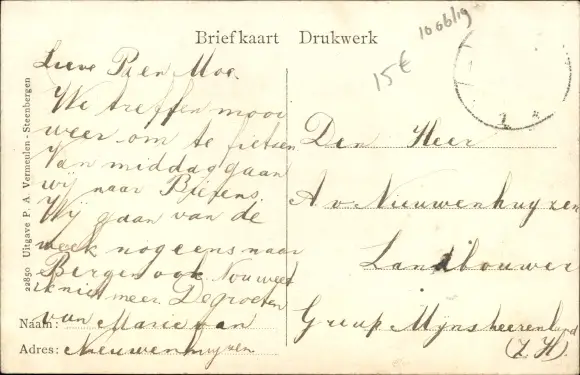 Briefkaart Drukwerk
15€
Lieve Pa en Moe.
We treffen mooi
weer om te fietsen
Van middag gaan
wij naar Bierens.
Wij gaan van de
week nog eens naar
Bergen ook. Nou weet
ik niet meer. De groeten
van Marie van
Nieuwenhuyzen.
Naam:
Adres:
Den Heer
A v. Nieuwenhuyzen
Landbouwer
Group Mijnsheerenland
(Z. H.).
22850 Uitgave P. A. Vermeulen - Steenbergen